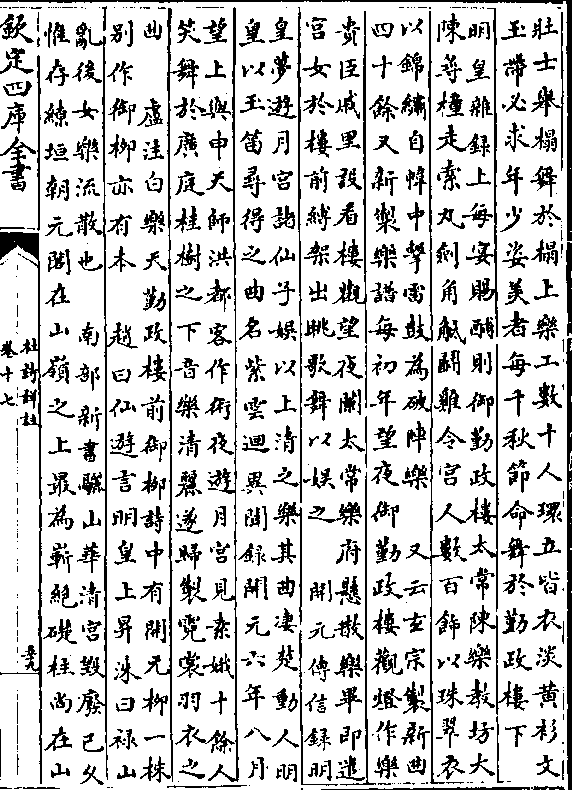 壯士舉榻舞於榻上樂工數十人環立皆衣淡黃衫文
玉帶必求年少姿美者每千秋節命舞於勤政樓下
明皇雜錄上每宴賜酺則御勤政樓太常陳樂教坊大
陳尋橦走索丸劍角觝鬬雞令宮人數百飾以珠翠衣
以錦繡自幃中擊雷鼓為破陣樂　又云玄宗製新曲
四十餘又新製樂譜每初年望夜御勤政樓觀燈作樂
貴臣戚里設看樓觀望夜闌太常樂府懸散樂畢即進
宮女於樓前縛架出眺歌舞以娛之　開元傳信錄明
皇夢遊月宮諸仙子娛以上清之樂其曲凄楚動人明
皇以玉笛尋得之曲名紫雲迴異聞錄開元六年八月
望上與申天師洪都客作術夜遊月宮見素娥十餘人
笑舞於廣庭桂樹之下音樂清麗遂歸製霓裳羽衣之
曲　盧注白樂天勤政樓前御柳詩中有開元柳一株
別作御柳亦有本　趙曰仙遊言明皇上昇洙曰祿山
亂後女樂流散也　南部新書驪山華清宮毀廢已久
惟存繚垣朝元閣在山嶺之上最為嶄絕礎柱尚在山
欽定四庫全書
杜詩詳註
卷十七